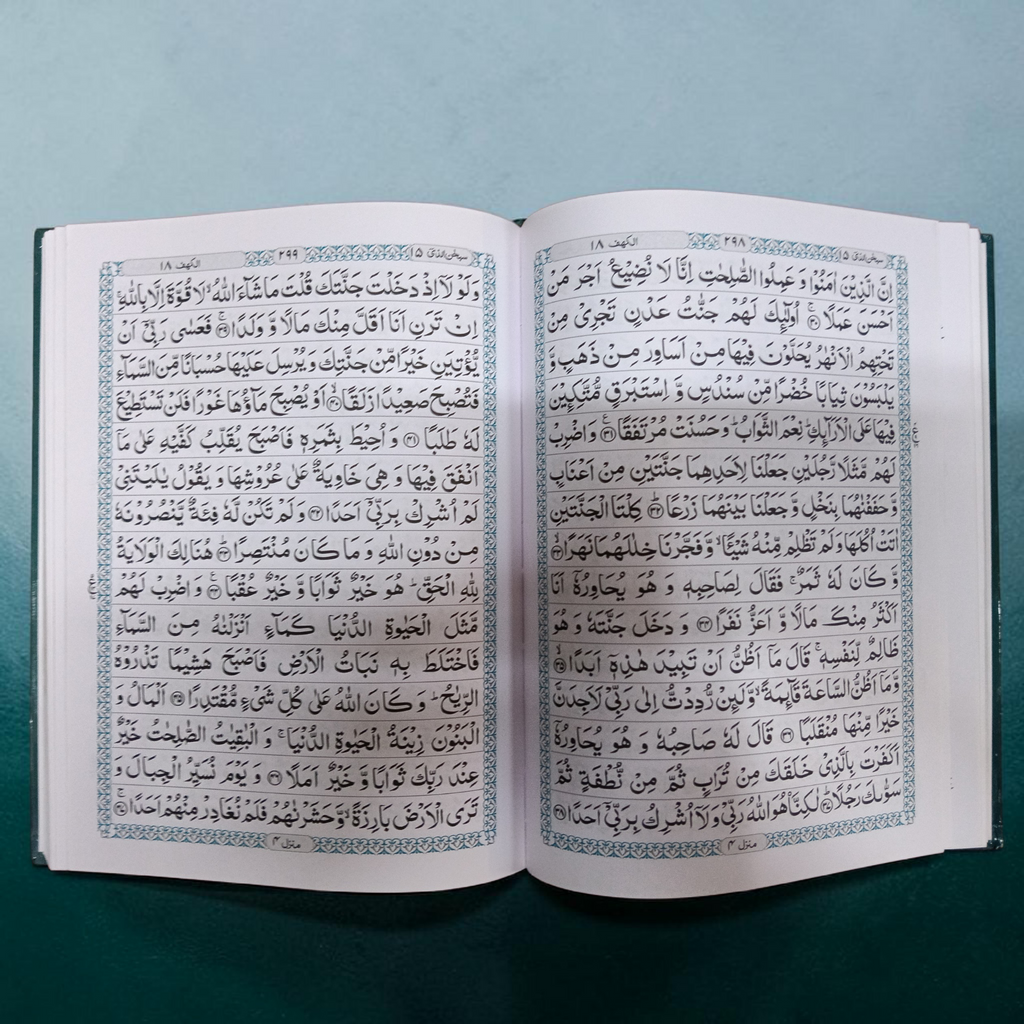 سبحٰن الذیٓ ۱۵
۲۹۸
الکهف ۱۸
اِنَّ الَّذِيْنَ اٰمَنُوْا وَ عَمِلُوا الصّٰلِحٰتِ اِنَّا لَا نُضِيْعُ اَجْرَ مَنْ
اَحْسَنَ عَمَلًا ۚ﴿۳۰﴾ اُولٰٓئِكَ لَهُمْ جَنّٰتُ عَدْنٍ تَجْرِيْ مِنْ
تَحْتِهِمُ الْاَنْهٰرُ يُحَلَّوْنَ فِيْهَا مِنْ اَسَاوِرَ مِنْ ذَهَبٍ وَّ
يَلْبَسُوْنَ ثِيَابًا خُضْرًا مِّنْ سُنْدُسٍ وَّ اِسْتَبْرَقٍ مُّتَّكِـِٕيْنَ
فِيْهَا عَلَى الْاَرَآئِكِ ؕ نِعْمَ الثَّوَابُ ؕ وَ حَسُنَتْ مُرْتَفَقًا ۠﴿۳۱﴾ وَ اضْرِبْ
لَهُمْ مَّثَلًا رَّجُلَيْنِ جَعَلْنَا لِاَحَدِهِمَا جَنَّتَيْنِ مِنْ اَعْنَابٍ
وَّ حَفَفْنٰهُمَا بِنَخْلٍ وَّ جَعَلْنَا بَيْنَهُمَا زَرْعًا ؕ﴿۳۲﴾ كِلْتَا الْجَنَّتَيْنِ
اٰتَتْ اُكُلَهَا وَ لَمْ تَظْلِمْ مِّنْهُ شَيْـًٔا ۙ وَّ فَجَّرْنَا خِلٰلَهُمَا نَهَرًا ۙ﴿۳۳﴾
وَّ كَانَ لَهٗ ثَمَرٌ ۚ فَقَالَ لِصَاحِبِهٖ وَ هُوَ يُحَاوِرُهٗۤ اَنَا
اَكْثَرُ مِنْكَ مَالًا وَّ اَعَزُّ نَفَرًا ﴿۳۴﴾ وَ دَخَلَ جَنَّتَهٗ وَ هُوَ
ظَالِمٌ لِّنَفْسِهٖ ۚ قَالَ مَاۤ اَظُنُّ اَنْ تَبِيْدَ هٰذِهٖۤ اَبَدًا ۙ﴿۳۵﴾
وَّ مَاۤ اَظُنُّ السَّاعَةَ قَآئِمَةً ۙ وَّ لَئِنْ رُّدِدْتُّ اِلٰى رَبِّيْ لَاَجِدَنَّ
خَيْرًا مِّنْهَا مُنْقَلَبًا ﴿۳۶﴾ قَالَ لَهٗ صَاحِبُهٗ وَ هُوَ يُحَاوِرُهٗۤ
اَكَفَرْتَ بِالَّذِيْ خَلَقَكَ مِنْ تُرَابٍ ثُمَّ مِنْ نُّطْفَةٍ ثُمَّ
سَوّٰىكَ رَجُلًا ؕ﴿۳۷﴾ لٰكِنَّا۠ هُوَ اللّٰهُ رَبِّيْ وَ لَاۤ اُشْرِكُ بِرَبِّيْۤ اَحَدًا ﴿۳۸﴾
ع
منزل ۴
سبحٰن الذیٓ ۱۵
۲۹۹
الکهف ۱۸
وَ لَوْ لَاۤ اِذْ دَخَلْتَ جَنَّتَكَ قُلْتَ مَا شَآءَ اللّٰهُ ۙ لَا قُوَّةَ اِلَّا بِاللّٰهِ ۚ
اِنْ تَرَنِ اَنَا اَقَلَّ مِنْكَ مَالًا وَّ وَلَدًا ۚ﴿۳۹﴾ فَعَسٰى رَبِّيْۤ اَنْ
يُّؤْتِيَنِ خَيْرًا مِّنْ جَنَّتِكَ وَ يُرْسِلَ عَلَيْهَا حُسْبَانًا مِّنَ السَّمَآءِ
فَتُصْبِحَ صَعِيْدًا زَلَقًا ۙ﴿۴۰﴾ اَوْ يُصْبِحَ مَآؤُهَا غَوْرًا فَلَنْ تَسْتَطِيْعَ
لَهٗ طَلَبًا ﴿۴۱﴾ وَ اُحِيْطَ بِثَمَرِهٖ فَاَصْبَحَ يُقَلِّبُ كَفَّيْهِ عَلٰى مَاۤ
اَنْفَقَ فِيْهَا وَ هِيَ خَاوِيَةٌ عَلٰى عُرُوْشِهَا وَ يَقُوْلُ يٰلَيْتَنِيْ
لَمْ اُشْرِكْ بِرَبِّيْۤ اَحَدًا ﴿۴۲﴾ وَ لَمْ تَكُنْ لَّهٗ فِئَةٌ يَّنْصُرُوْنَهٗ
مِنْ دُوْنِ اللّٰهِ وَ مَا كَانَ مُنْتَصِرًا ؕ﴿۴۳﴾ هُنَالِكَ الْوَلَايَةُ
لِلّٰهِ الْحَقِّ ؕ هُوَ خَيْرٌ ثَوَابًا وَّ خَيْرٌ عُقْبًا ۠﴿۴۴﴾ وَ اضْرِبْ لَهُمْ
مَّثَلَ الْحَيٰوةِ الدُّنْيَا كَمَآءٍ اَنْزَلْنٰهُ مِنَ السَّمَآءِ
فَاخْتَلَطَ بِهٖ نَبَاتُ الْاَرْضِ فَاَصْبَحَ هَشِيْمًا تَذْرُوْهُ
الرِّيٰحُ ؕ وَ كَانَ اللّٰهُ عَلٰى كُلِّ شَيْءٍ مُّقْتَدِرًا ﴿۴۵﴾ اَلْمَالُ وَ
الْبَنُوْنَ زِيْنَةُ الْحَيٰوةِ الدُّنْيَا ۚ وَ الْبٰقِيٰتُ الصّٰلِحٰتُ خَيْرٌ
عِنْدَ رَبِّكَ ثَوَابًا وَّ خَيْرٌ اَمَلًا ﴿۴۶﴾ وَ يَوْمَ نُسَيِّرُ الْجِبَالَ وَ
تَرَى الْاَرْضَ بَارِزَةً ۙ وَّ حَشَرْنٰهُمْ فَلَمْ نُغَادِرْ مِنْهُمْ اَحَدًا ۚ﴿۴۷﴾
ع
منزل ۴